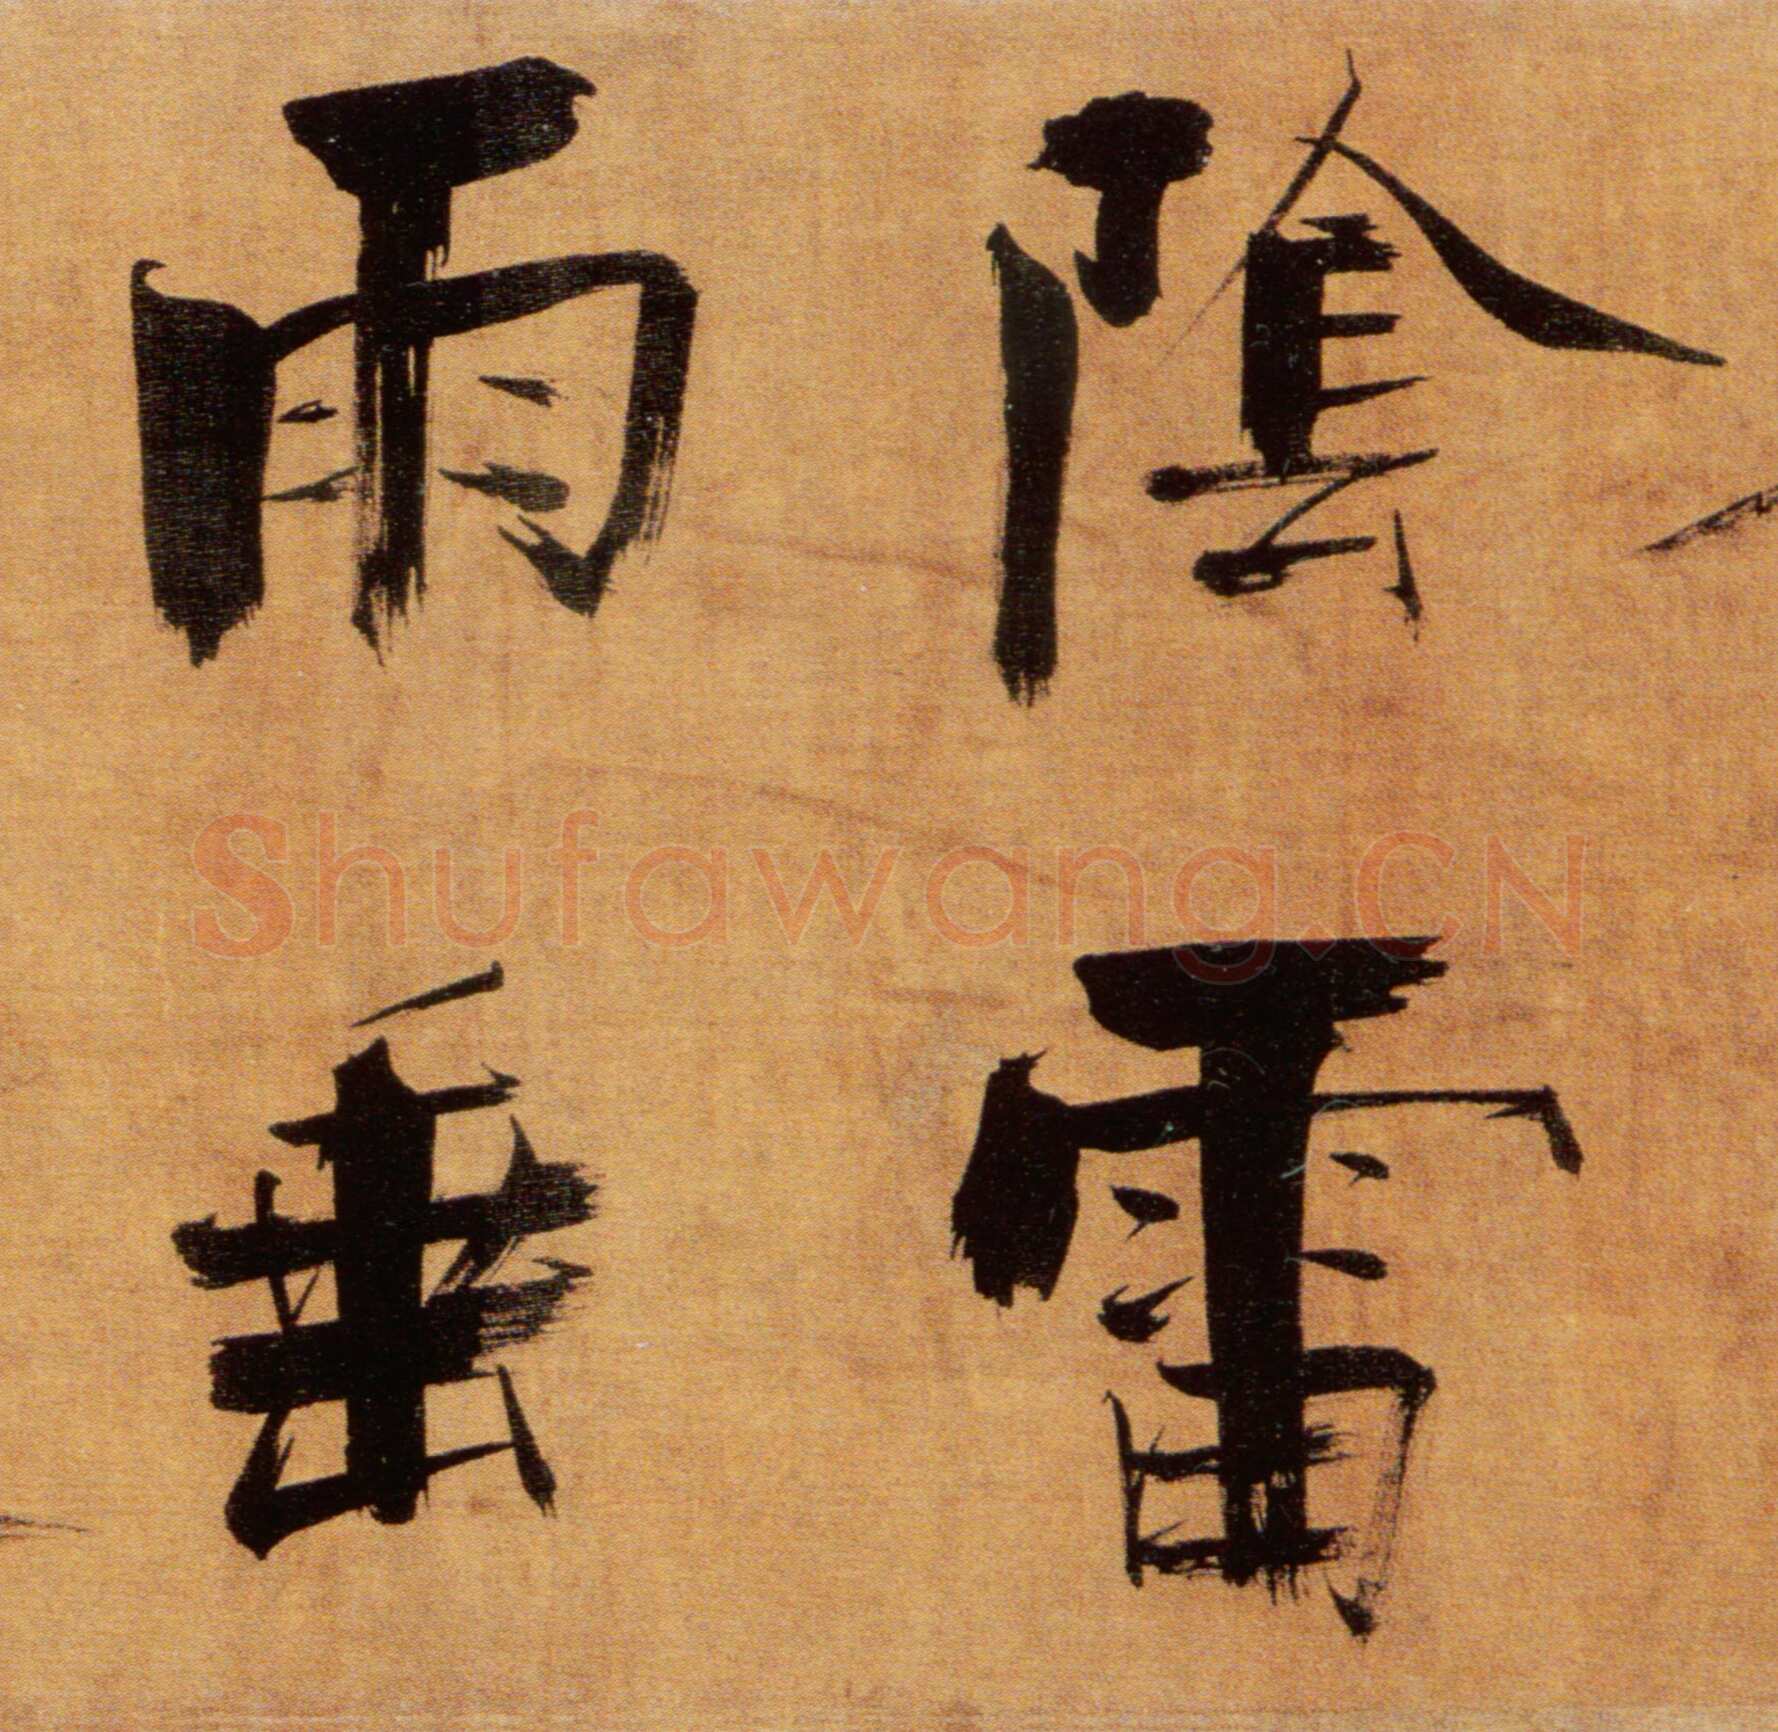 陰雷
雨垂
Shufawang.CN